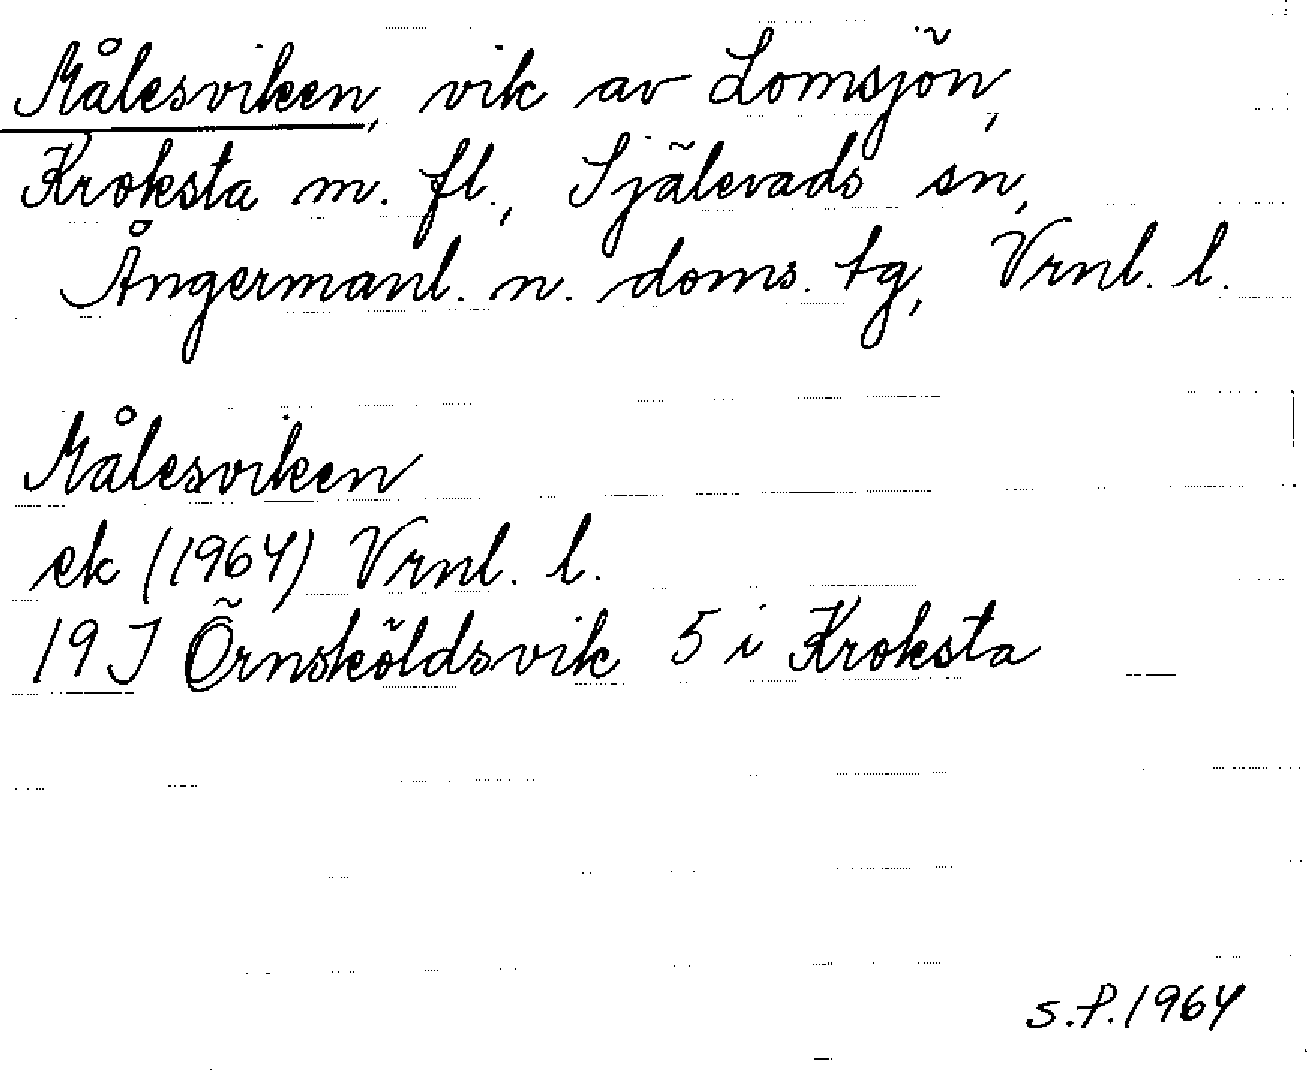 Målesviken, vik av Lomsjön,
Kroksta m. fl., Själevads sn,
Ångermanl. n. doms. tg, Vrnl. l.
Målesviken
ek (1964) Vrnl. l.
19J Örnsköldsvik 5 i Kroksta
s.f. 1964